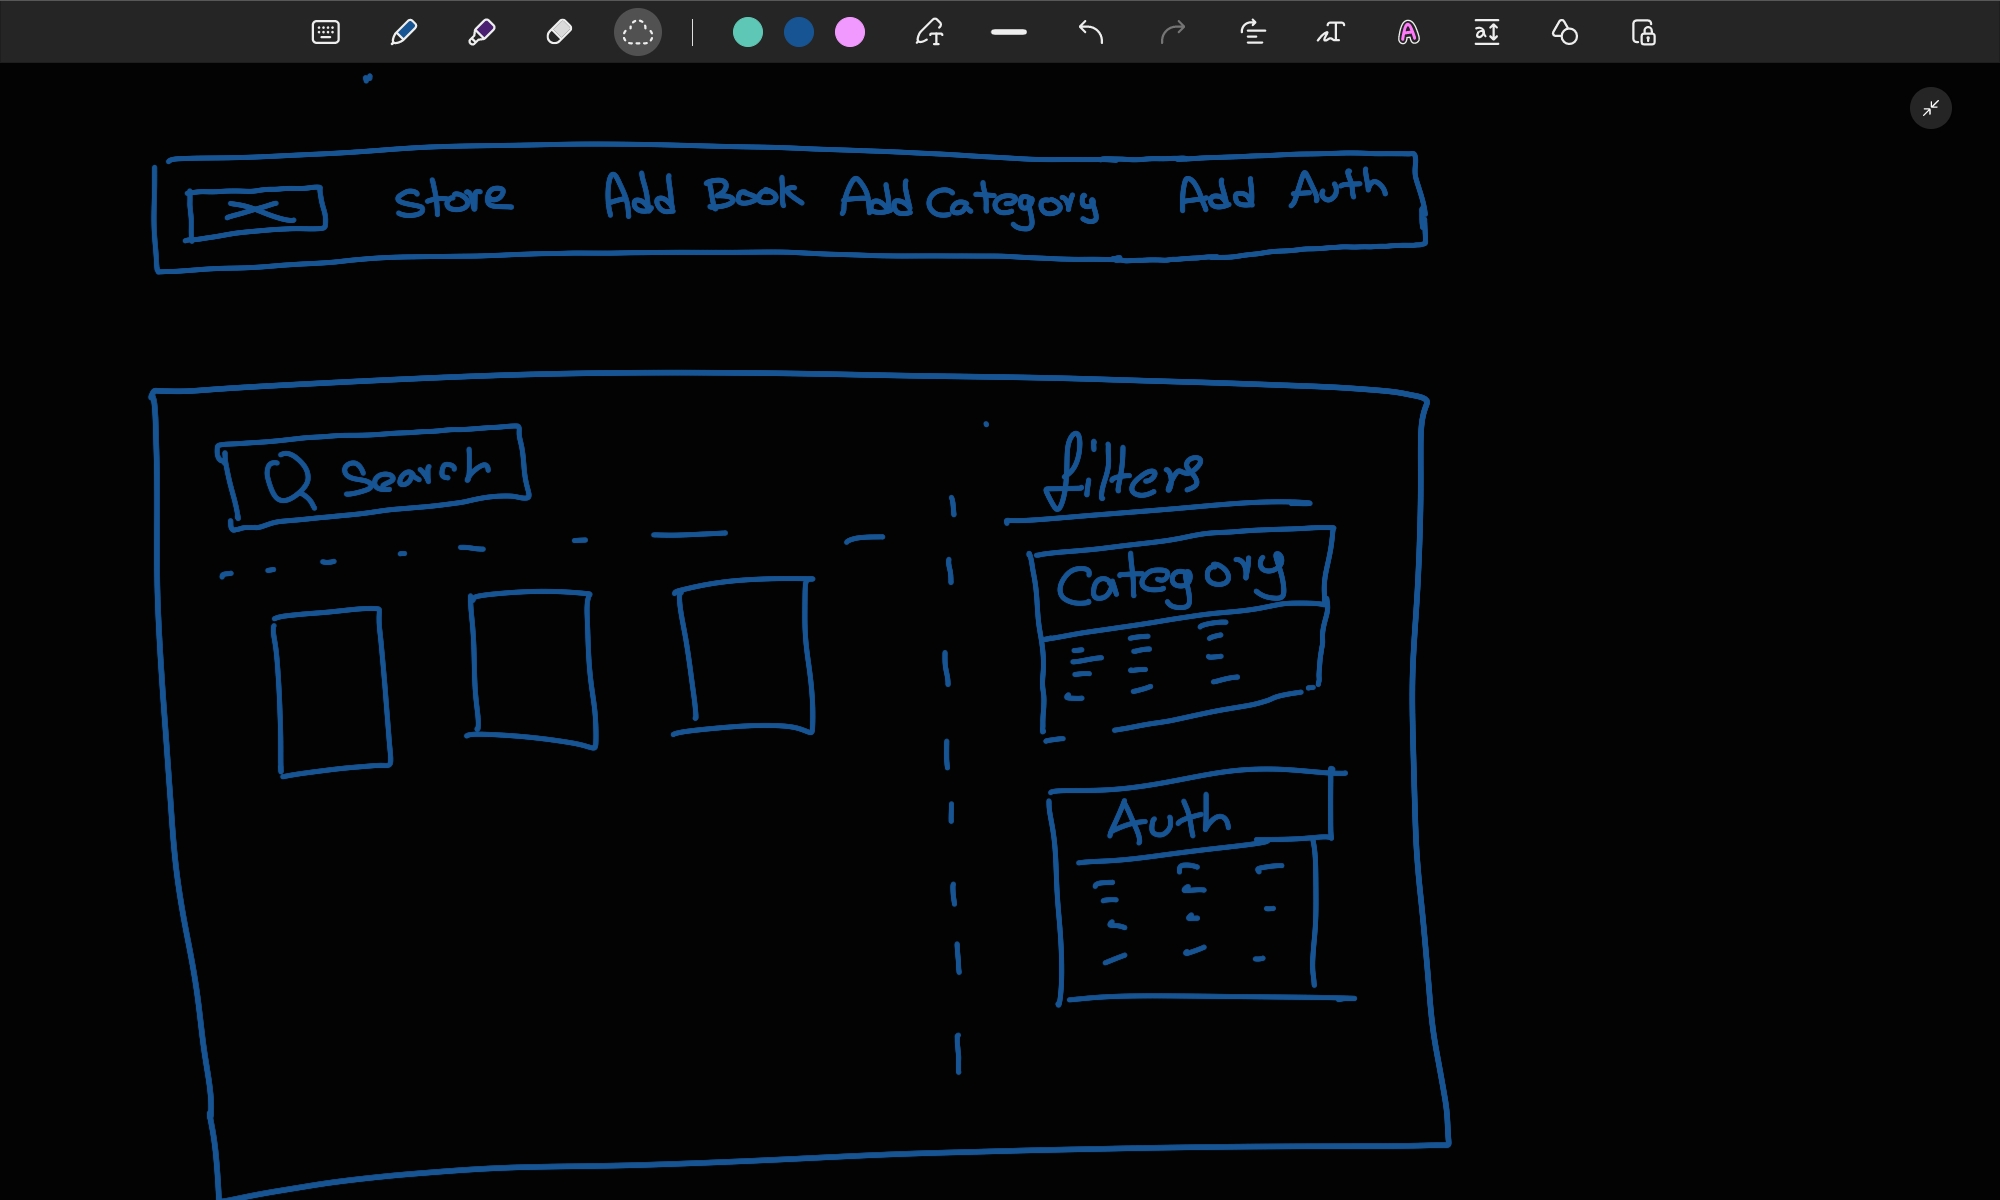 Store Add Book Add Category Add Auth
Search
filters
Category
Auth